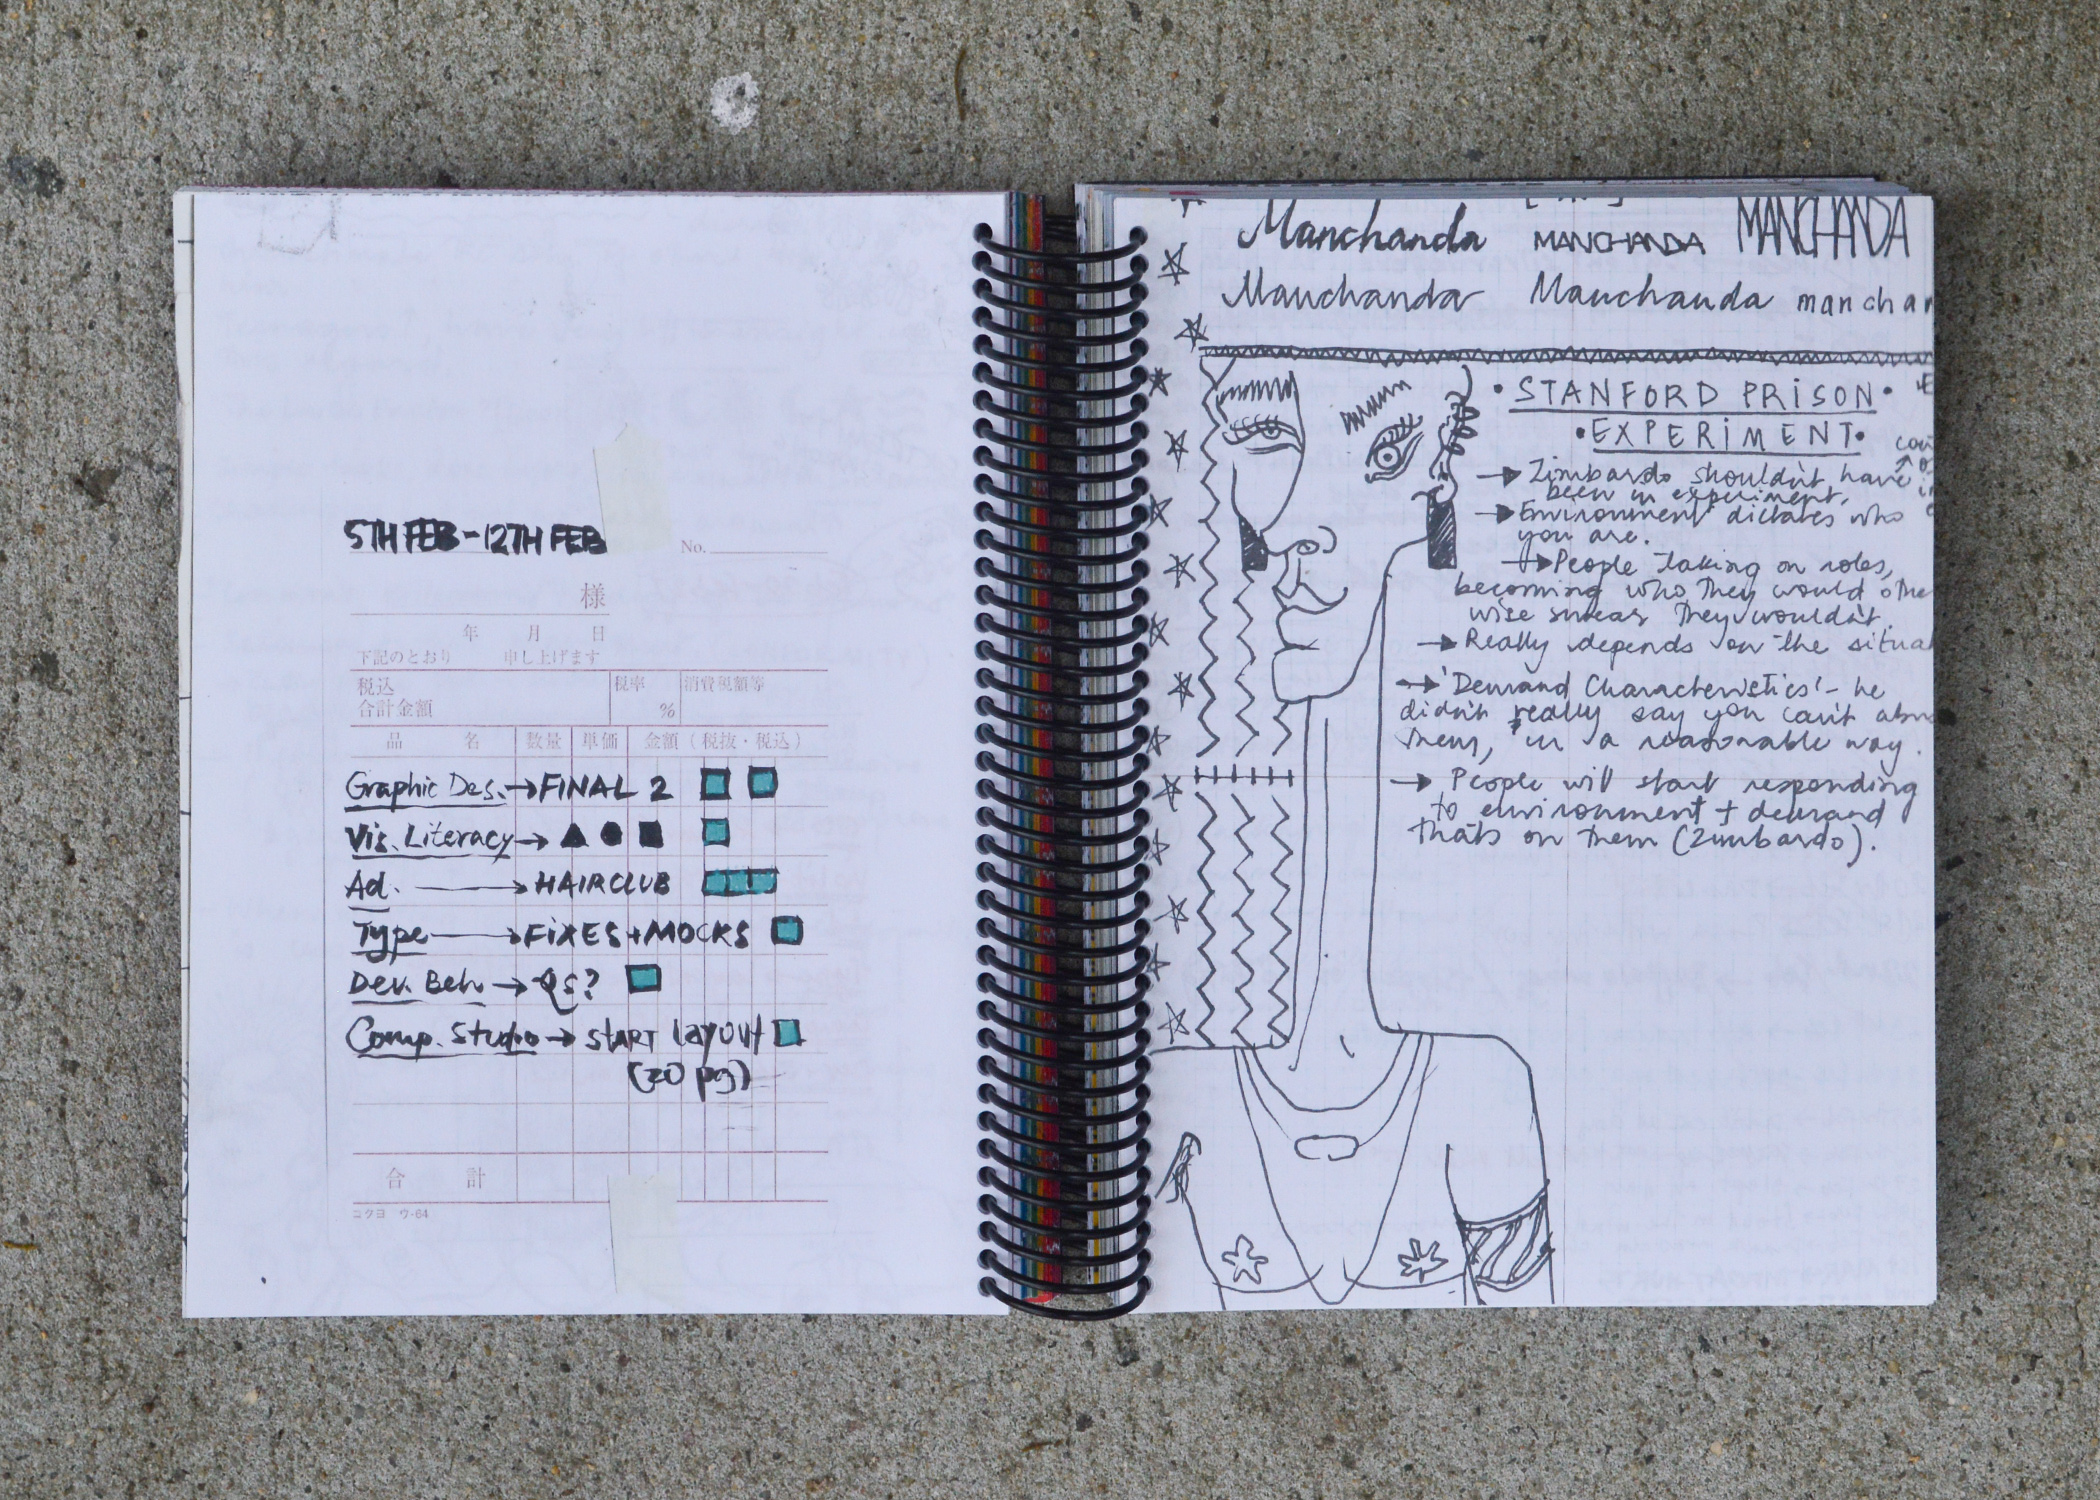 5TH FEB - 12TH FEB
No.
様
年 月 日
下記のとおり 申し上げます
税込 合計金額
税率 %
消費税額等
品 名 数量 単価 金額 (税抜・税込)
Graphic Des. → FINAL 2
Vis. Literacy →
Ad. → HAIRCLUB
Type → FIXES + MOCKS
Dev. Beh → Qs?
Comp. Studio → START layout
(20 pg)
合 計
コクヨ ウ-64
Manchanda MANCHANDA MANCHANDA
Manchanda Manchanda manchan
• STANFORD PRISON •
• EXPERIMENT •
→ Zimbardo shouldn't have
been in experiment.
→ Environment dictates who
you are.
→ People taking on roles,
becoming who they would othe
wise swear they wouldn't.
→ Really depends on the situat
→ 'Demand Characteristics' - he
didn't really say you can't abu
them, in a reasonable way.
→ People will start responding
to environment + demand
thats on them (Zimbardo).